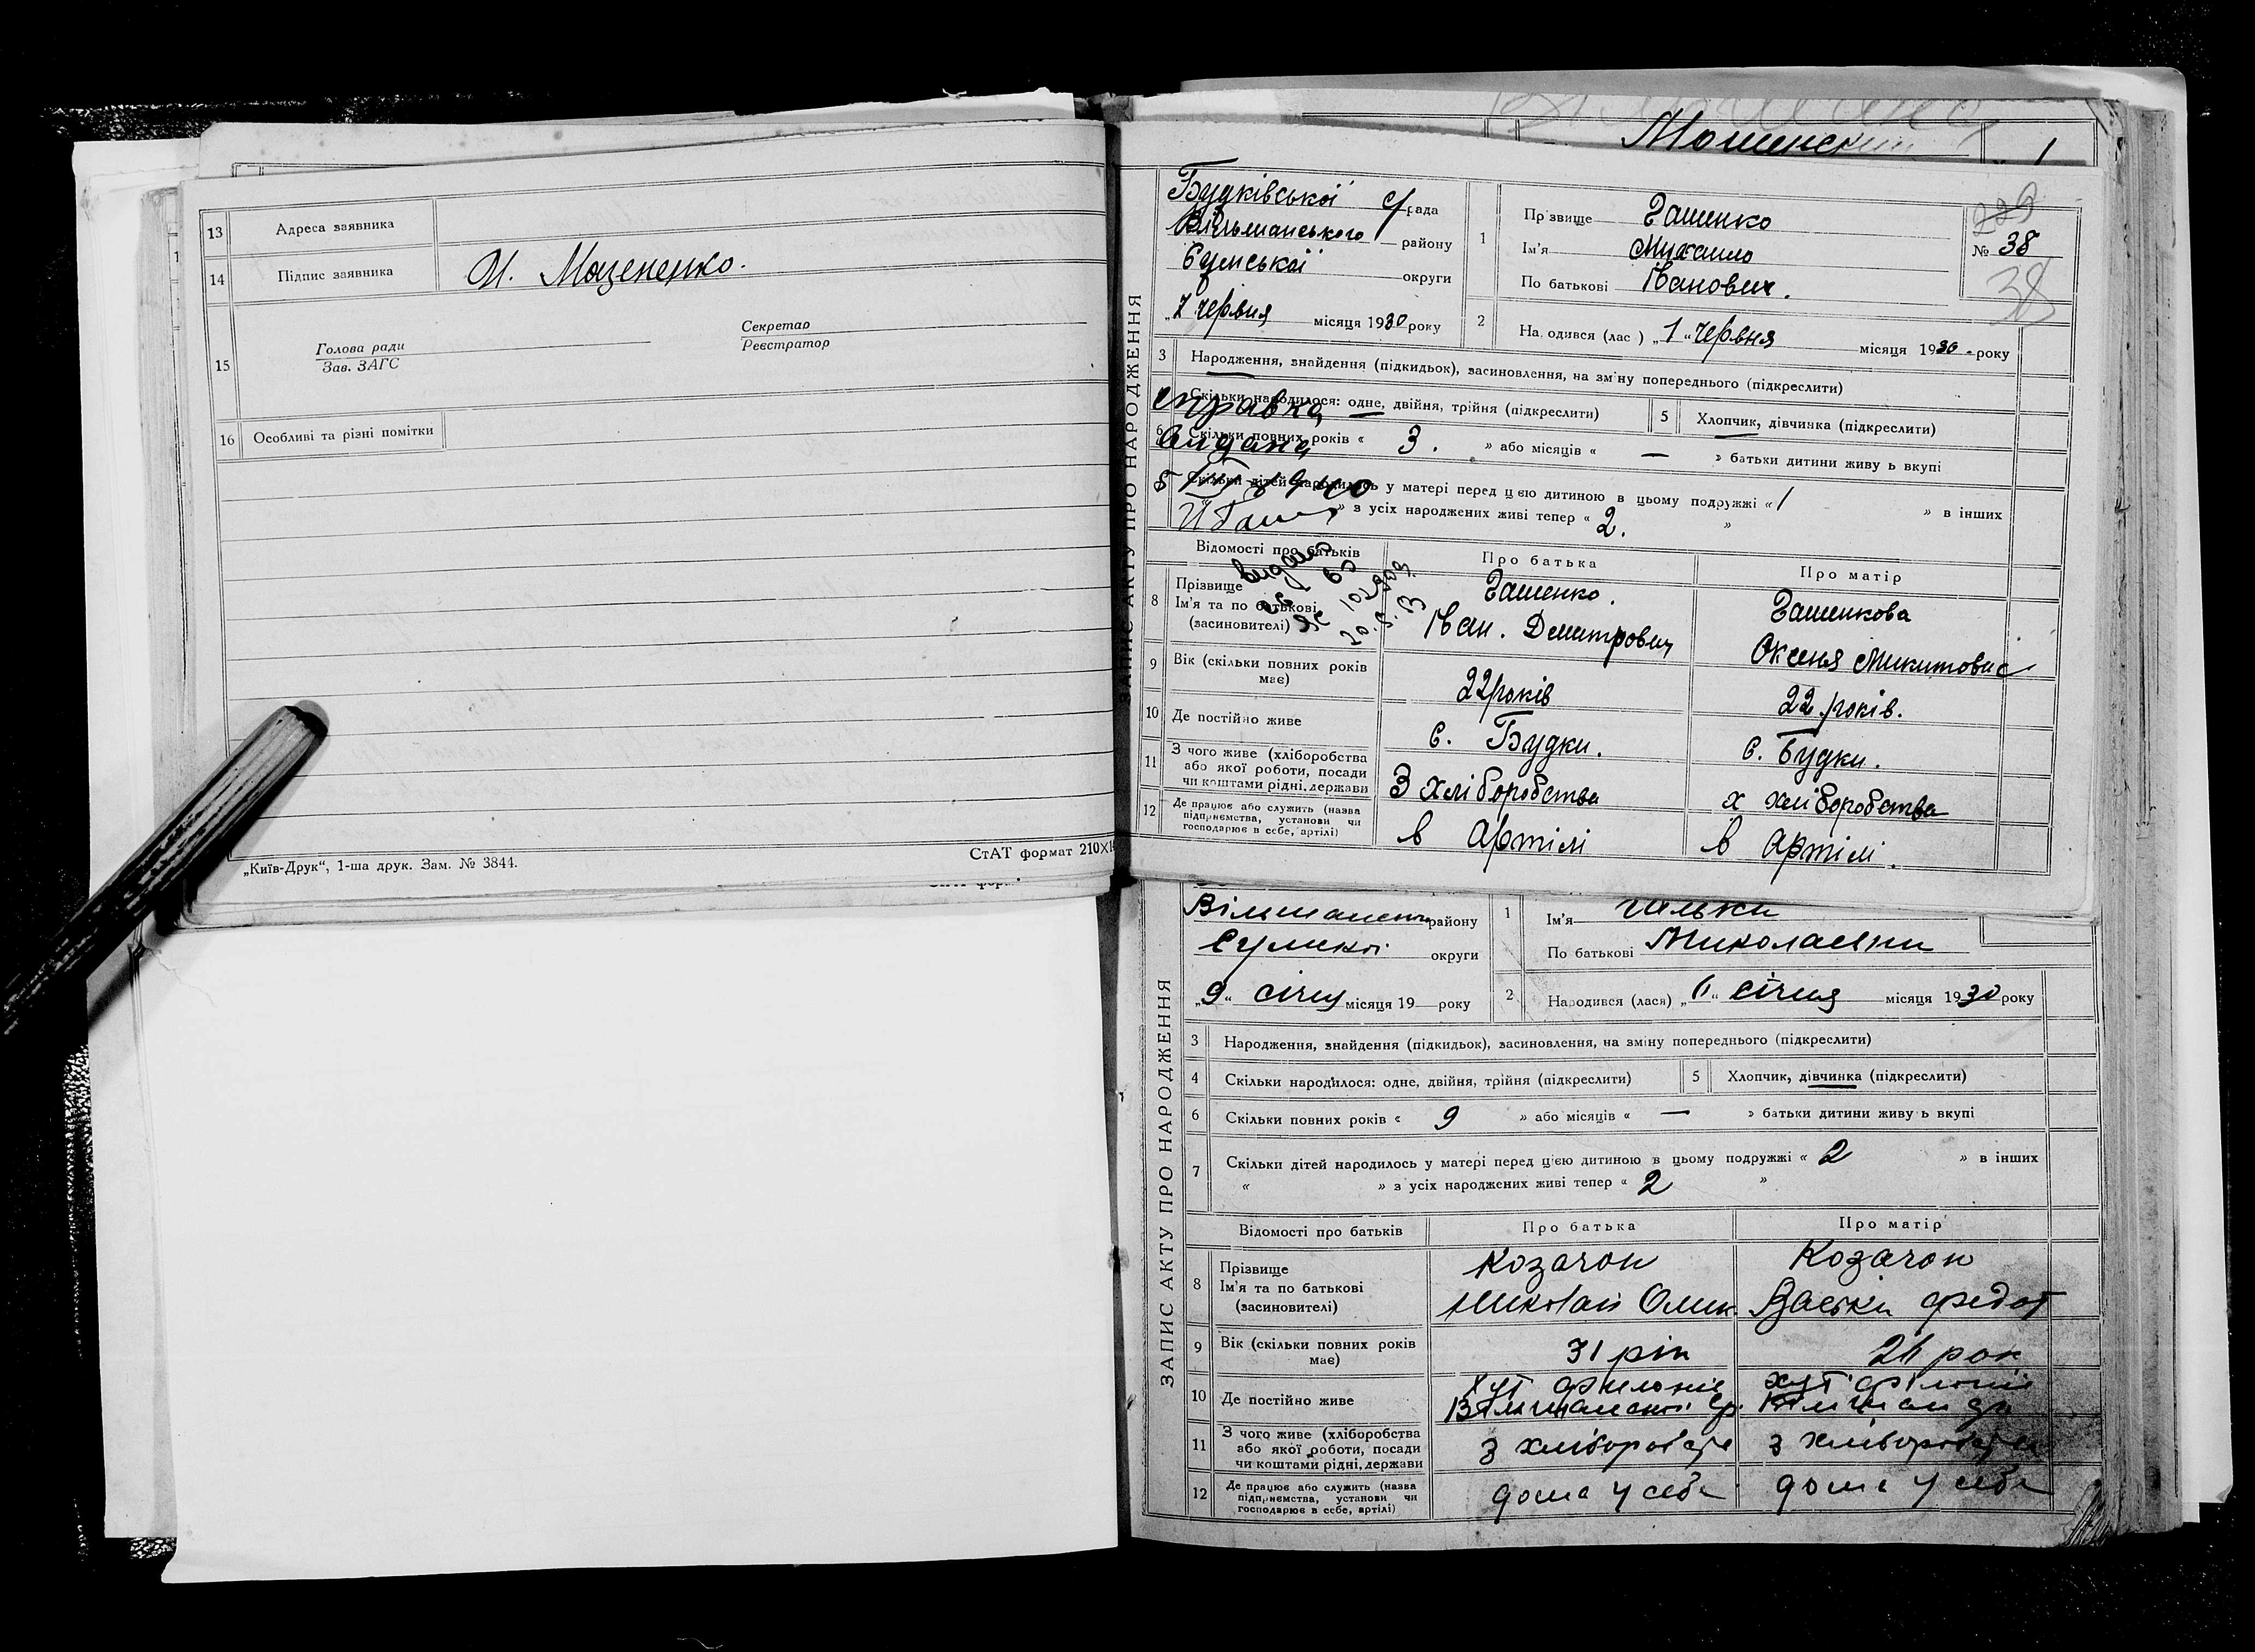 13 Адреса заявника
14 Підпис заявника И. Моцененко.
15 Голова ради
Зав. ЗАГС
Секретар
Реєстратор
16 Особливі та різні помітки
„Київ-Друк“, 1-ша друк. Зам. № 3844.
СтАТ формат 210×1
Мошенский 1
ЗАПИС АКТУ ПРО НАРОДЖЕННЯ
Будківської с/рада
Вільшанського району
Сумської округи
„7 червня місяця 1930 року
1 Прізвище Гашенко
Ім'я Михаило
По батькові Іванович.
№ 38
38
2 На одився (лас ) „1“ червня місяця 1930 року
3 Народження, знайдення (підкидьок), засиновлення, на зміну попереднього (підкреслити)
Скільки народилося: одне, двійня, трійня (підкреслити)
5 Хлопчик, дівчинка (підкреслити)
справка
видана
6 Скільки повних років « 3. » або місяців « — » батьки дитини живу ь вкупі
Скільки дітей народилось у матері перед цією дитиною в цьому подружжі « 1 » в інших
» з усіх народжених живі тепер « 2. »
Відомості про батьків
Про батька
Про матір
видано
8 Прізвище
Ім'я та по батькові
(засиновителі)
Гашенко.
Іван. Дмитрович
Гашенкова
Оксеня Микитовис
9 Вік (скільки повних років має)
22 років
22 років.
10 Де постійно живе
с. Будки.
с. Будки.
11 З чого живе (хліборобства
або якої роботи, посади
чи коштами рідні, держави
З хліборобства
х хліборобства
12 Де працює або служить (назва
підприємства, установи чи
господарює в себе, артілі)
в Артілі
в Артілі.
ЗАПИС АКТУ ПРО НАРОДЖЕННЯ
району
Сумскої округи
„9“ січня місяця 19 року
1 Ім'я Гальки
По батькові Миколаевни
2 Народився (лася) „ “ січня місяця 1930 року
3 Народження, знайдення (підкидьок), засиновлення, на зміну попереднього (підкреслити)
4 Скільки народилося: одне, двійня, трійня (підкреслити)
5 Хлопчик, дівчинка (підкреслити)
6 Скільки повних років « 9 » або місяців « — » батьки дитини живу ь вкупі
7 Скільки дітей народилось у матері перед цією дитиною в цьому подружжі « 2 » в інших
« » з усіх народжених живі тепер « 2 »
Відомості про батьків
Про батька
Про матір
8 Прізвище
Ім'я та по батькові
(засиновителі)
Козачок
Николай Олик
Козачок
Васьки Федот
9 Вік (скільки повних років має)
31 рік
рок
10 Де постійно живе
хут
хут
11 З чого живе (хліборобства
або якої роботи, посади
чи коштами рідні, держави
з хліборобства
з хліборобства
12 Де працює або служить (назва
підприємства, установи чи
господарює в себе, артілі)
дома у себе
дома у себе